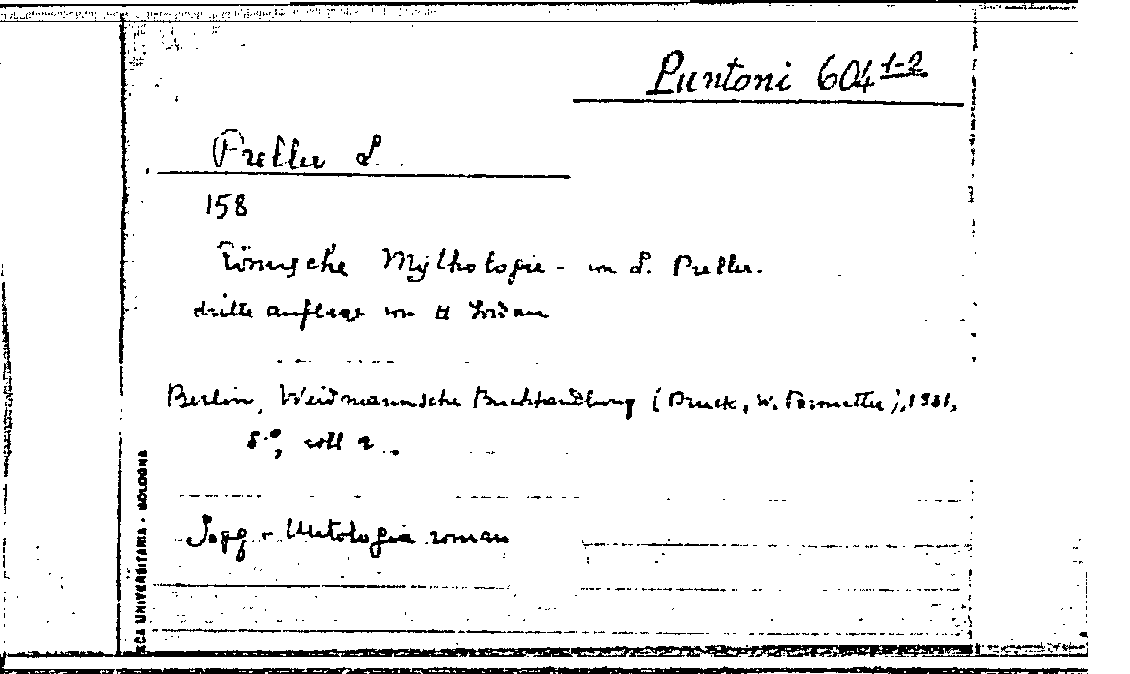 Puntoni 604 1-2
Preller L
158
Römische Mythologie - von L. Preller.
dritte auflage von H Jordan
Berlin, Weidmannsche Buchhandlung (Druck, W. ), 1881,
8.°, voll 2.
Sogg - Mitologia romana
CA UNIVERSITARIA - BOLOGNA